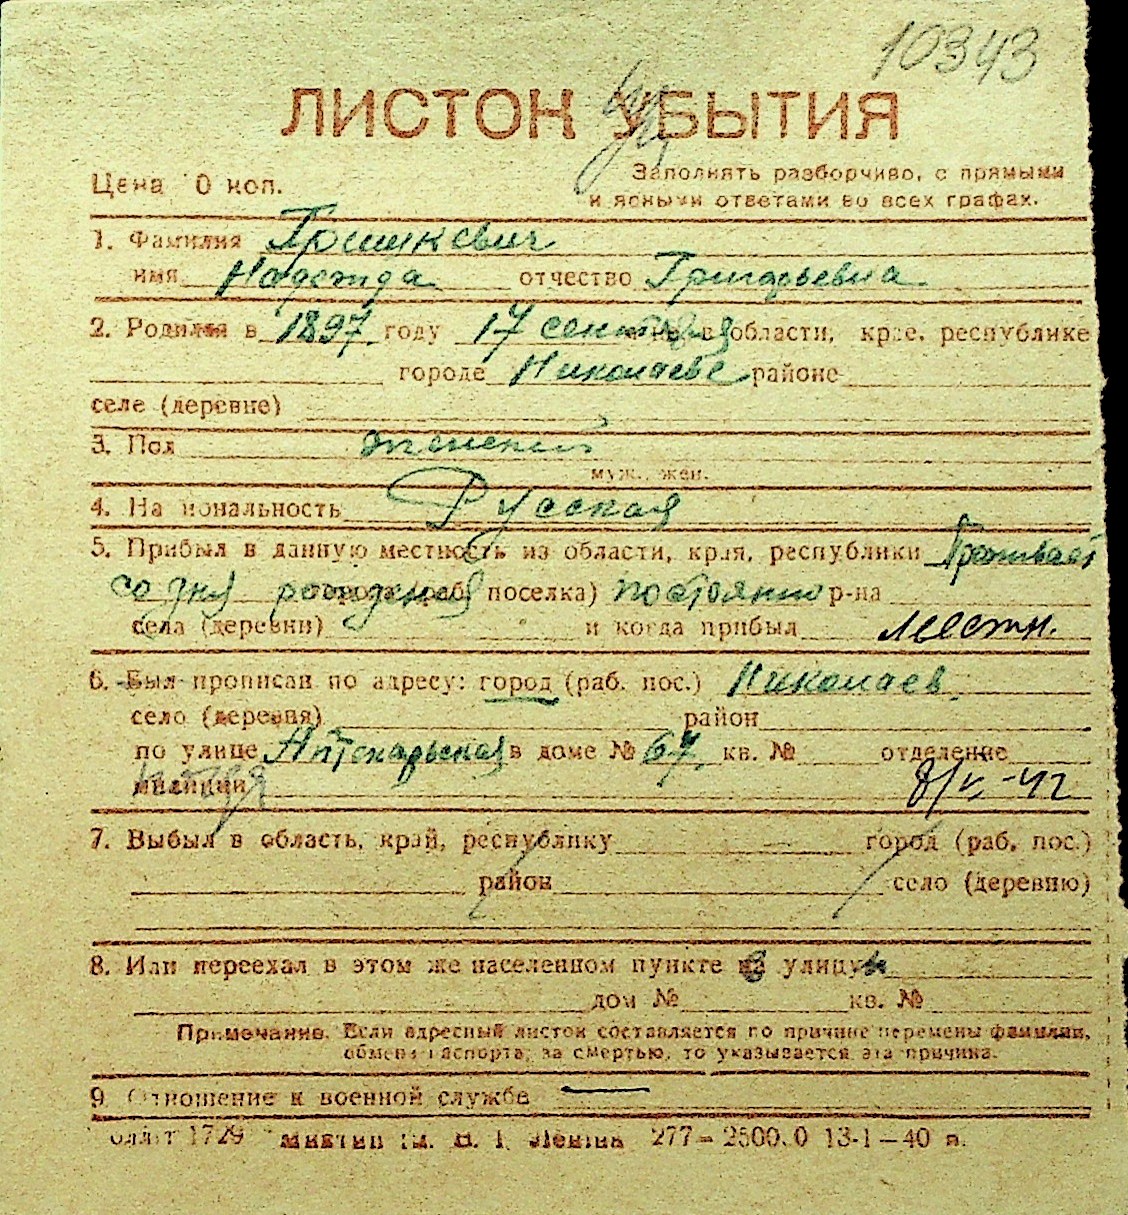 10343
ЛИСТОК УБЫТИЯ
Цена 10 коп.
Заполнять разборчиво, с прямыми
и ясными ответами во всех графах.
1. Фамилия Грицукевич
имя Надежда отчество Григорьевна
2. Родился в 1897 году 17 сентября в области, крае, республике
городе Николаеве районе
селе (деревне)
3. Пол женский
муж., жен.
4. Национальность Русская
5. Прибыл в данную местность из области, края, республики Проживает
со дня рождения города (раб. поселка) постоянно р-на
села (деревни) и когда прибыл местн.
6. Был прописан по адресу: город (раб. пос.) Николаев
село (деревня) район
по улице Аптекарьская в доме № 67 кв. № отделение
милиции 8/V-42
7. Выбыл в область, край, республику город (раб. пос.)
район село (деревню)
8. Или переехал в этом же населенном пункте на улицу
дом № кв. №
Примечание. Если адресный листок составляется по причине перемены фамилии,
обмена паспорта, за смертью, то указывается эта причина.
9. Отношение к военной службе —
1729 им. В. И. Ленина 277 — 2500.0 13-1—40 г.